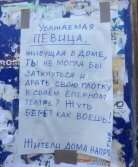 Уважаемая
ПЕВИЦА,
живущая в доме,
ты не могла бы
заткнуться и
драть свою глотку
в своём оперном
театре? Жуть
берёт как воешь!
Жители дома напро